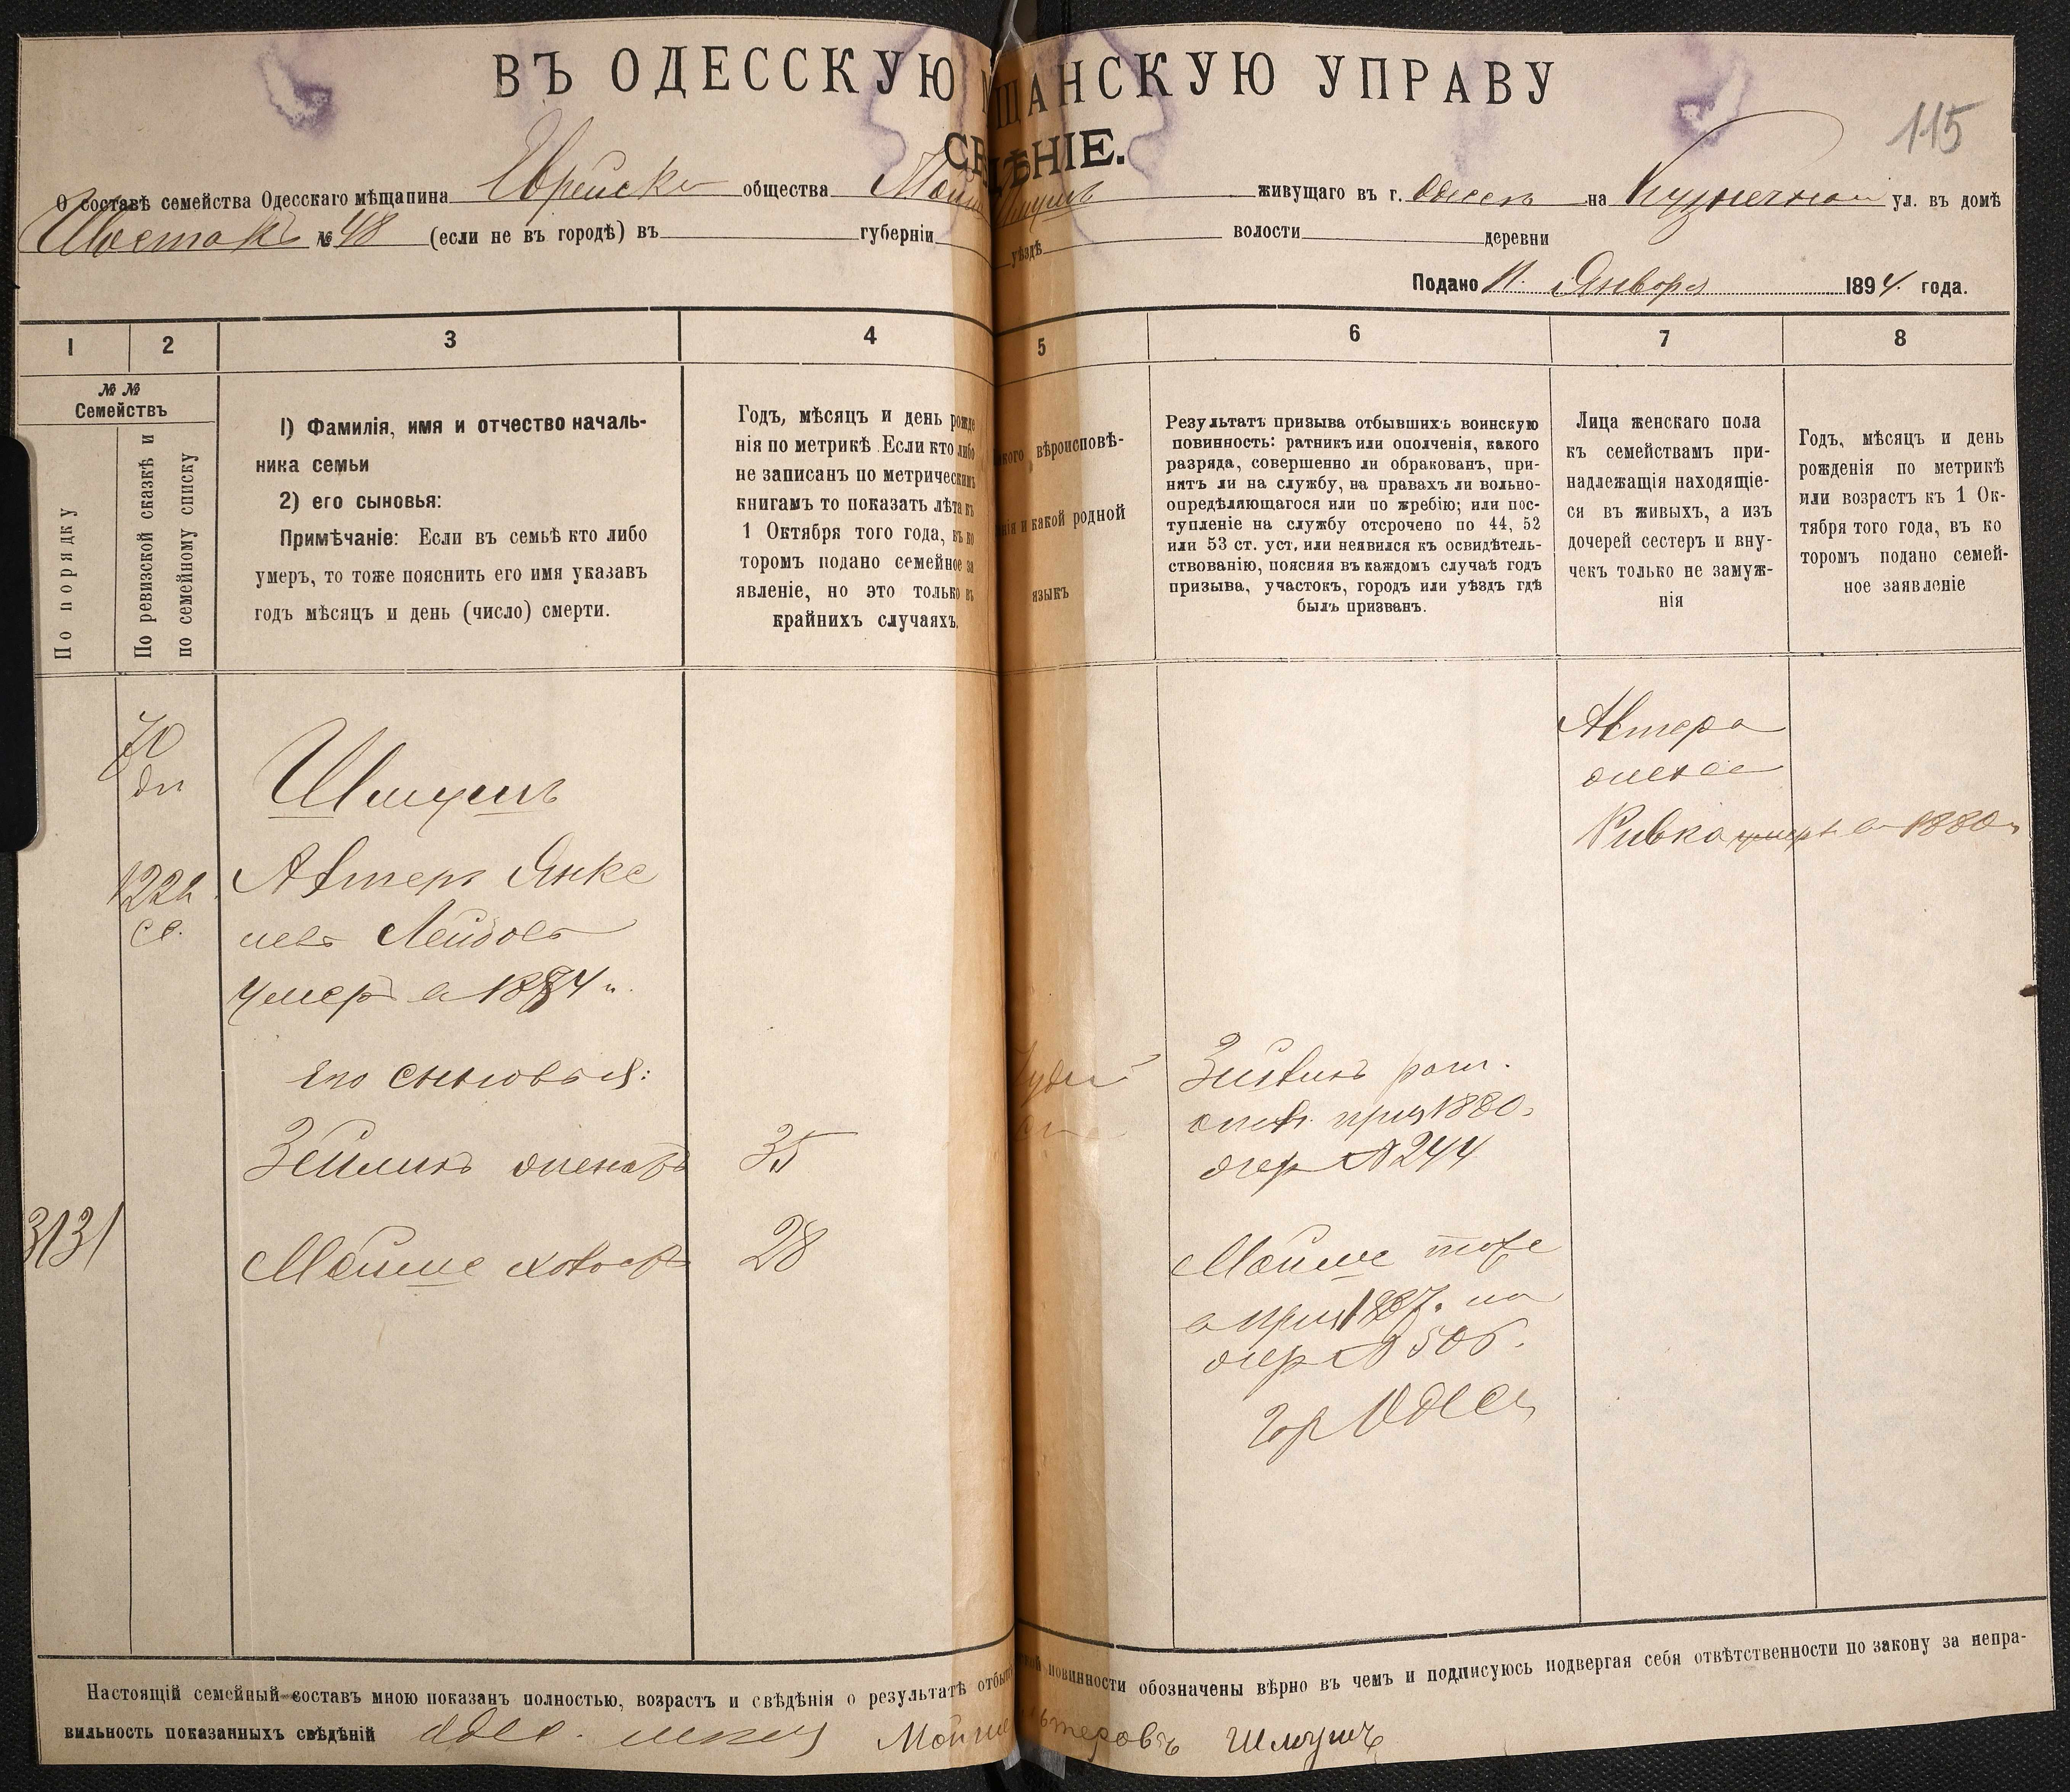 ВЪ ОДЕССКУЮ МЩАНСКУЮ УПРАВУ
115
СВѢДѢНІЕ.
О составѣ семейства Одесскаго мѣщанина Еврейск общества Мойше Шмуль живущаго въ г. Одессѣ на Кузнечной ул. въ домѣ
Шестакъ № 48 (если не въ городѣ) въ губерніи уѣздѣ волости деревни
Подано 11. Января 1894 года.
1 2 3 4 5 6 7 8
№№
Семействъ
По порядку
По ревизской сказкѣ и
по семейному списку
1) Фамилія, имя и отчество началь-
ника семьи
2) его сыновья:
Примѣчаніе: Если въ семьѣ кто либо
умеръ, то тоже пояснить его имя указавъ
годъ мѣсяцъ и день (число) смерти.
Годъ, мѣсяцъ и день рожде
нія по метрикѣ. Если кто либо
не записанъ по метрическимъ
книгамъ то показать лѣта къ
1 Октября того года, въ ко
торомъ подано семейное за
явленіе, но это только въ
крайнихъ случаяхъ.
акого вѣроисповѣ-
анія и какой родной
языкъ
Результатъ призыва отбывшихъ воинскую
повинность: ратникъ или ополченія, какого
разряда, совершенно ли обракованъ, при-
нятъ ли на службу, на правахъ ли вольно-
опредѣляющагося или по жребію; или пос-
тупленіе на службу отсрочено по 44, 52
или 53 ст. уст, или неявился къ освидѣтель-
ствованію, поясняя въ каждомъ случаѣ годъ
призыва, участокъ, городъ или уѣздъ гдѣ
былъ призванъ.
Лица женскаго пола
къ семействамъ при-
надлежащія находящіе-
ся въ живыхъ, а изъ
дочерей сестеръ и вну-
чекъ только не замуж-
нія
Годъ, мѣсяцъ и день
рожденія по метрикѣ
или возрастъ къ 1 Ок-
тября того года, въ ко
торомъ подано семей-
ное заявленіе
70
дп
Шмуль
1222
сс.
Алтеръ Янке
левъ Лейбовъ
умеръ в 1884 г.
его сыновья:
Зейликъ женатъ 35
3131
Мойше холостъ 28
Іудей
Зейликъ рат.
опол. приз 1880г
жер № 244
Мойше тоже
в приз 1887г. по
жер № 506.
гор Одесса
Алтера
жена
Ривка умерла в 1880г
Настоящій семейный составъ мною показанъ полностью, возрастъ и свѣдѣнія о результатѣ отбыт ской повинности обозначены вѣрно въ чемъ и подписуюсь подвергая себя отвѣтственности по закону за непра-
вильность показанныхъ свѣдѣній Одес. мѣщ Мойше Альтеровъ Шмуль